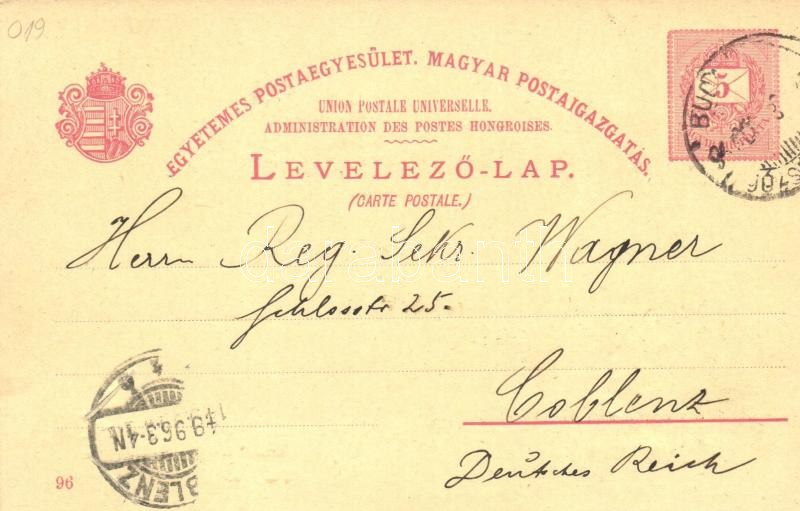 019
EGYETEMES POSTAEGYESÜLET. MAGYAR POSTAIGAZGATÁS.
UNION POSTALE UNIVERSELLE.
ADMINISTRATION DES POSTES HONGROISES.
LEVELEZŐ-LAP.
(CARTE POSTALE.)
5
BUD
Herrn Reg. Sekr. Wagner
Schlosstr 25.
Coblenz
Deutsches Reich
9.96.3-4N
BLENZ
96